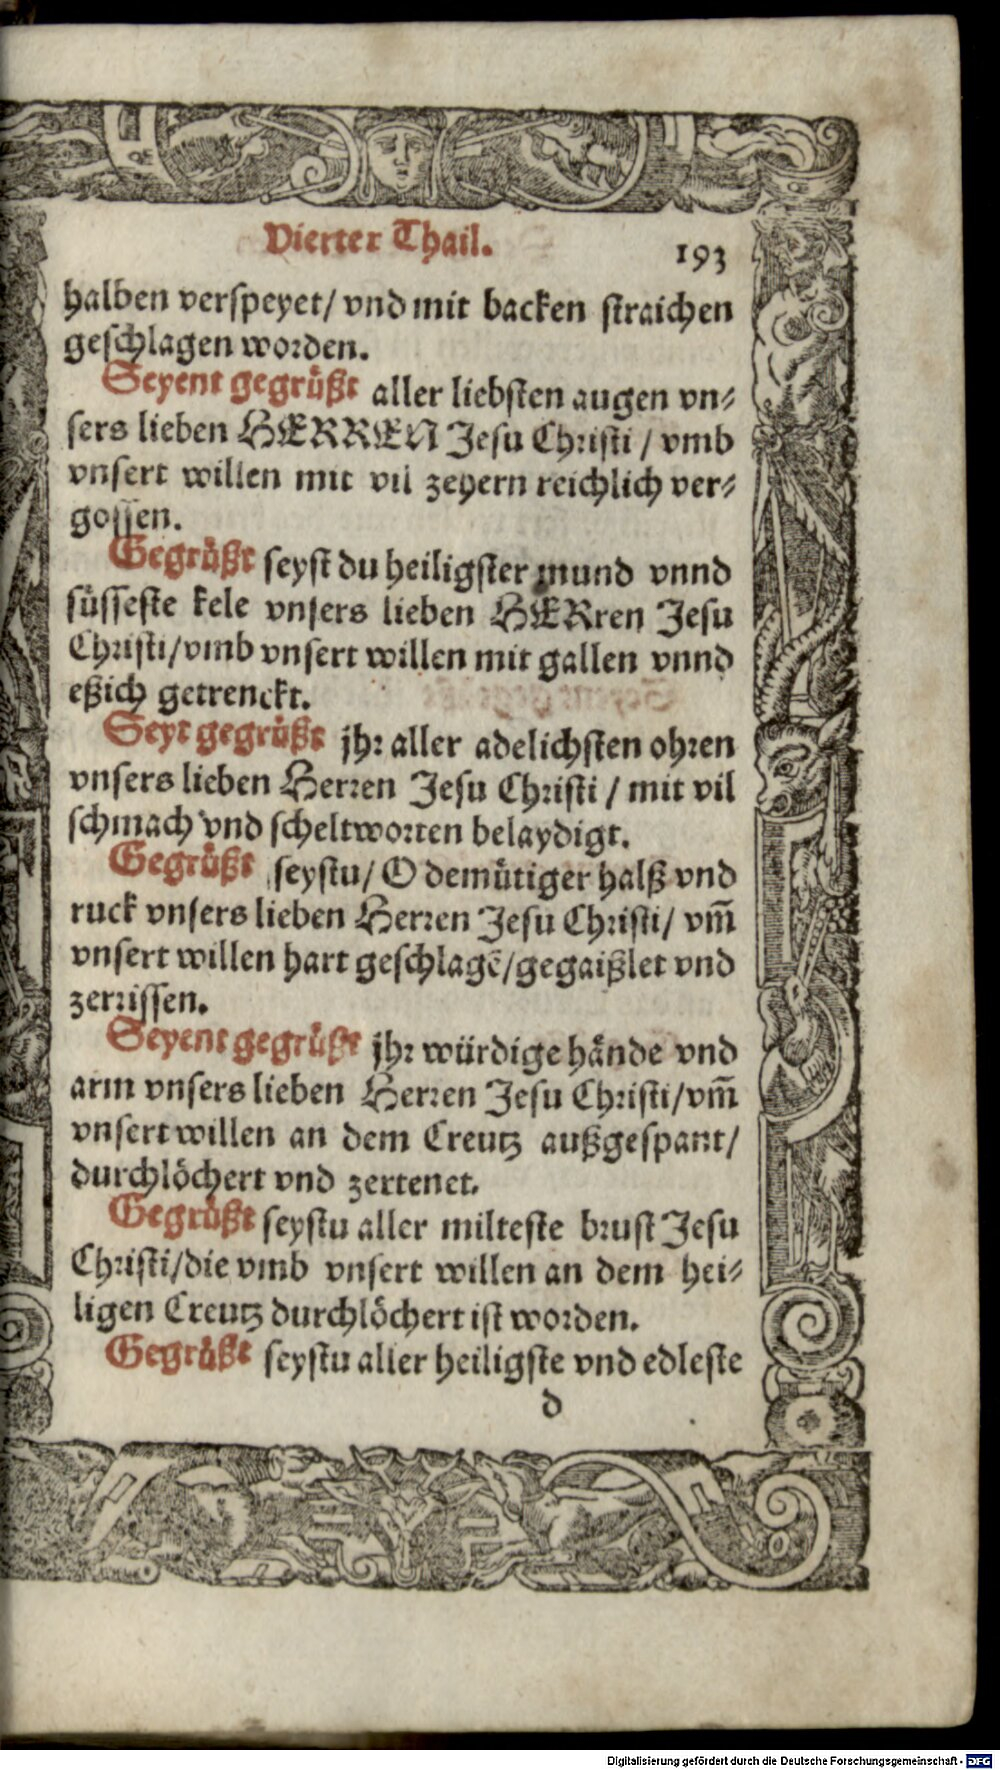 Vierter Thail. 193
halben verspeyet/ vnd mit backen straichen
geschlagen worden.
Seyent gegrüßt aller liebsten augen vn-
sers lieben HERREN Jesu Christi / vmb
vnsert willen mit vil zeyern reichlich ver-
gossen.
Gegrüßt seyst du heiligster mund vnnd
süsseste kele vnsers lieben HERren Jesu
Christi/vmb vnsert willen mit gallen vnnd
eßich getrenckt.
Seyt gegrüßt jhr aller adelichsten ohren
vnsers lieben Herren Jesu Christi / mit vil
schmach vnd scheltworten belaydigt.
Gegrüßt seystu/ O demütiger halß vnd
ruck vnsers lieben Herren Jesu Christi/ vm̃
vnsert willen hart geschlagẽ/gegaißlet vnd
zerrissen.
Seyent gegrüßt jhr würdige hände vnd
arm vnsers lieben Herren Jesu Christi/vm̃
vnsert willen an dem Creutz außgespant/
durchlöchert vnd zertenet.
Gegrüßt seystu aller milteste brust Jesu
Christi/die vmb vnsert willen an dem hei-
ligen Creutz durchlöchert ist worden.
Gegrüßt seystu aller heiligste vnd edleste
d
Digitalisierung gefördert durch die Deutsche Forschungsgemeinschaft - DFG